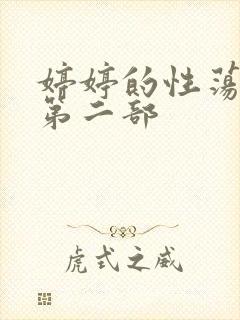 婷婷的性荡
第二部
虎式之威